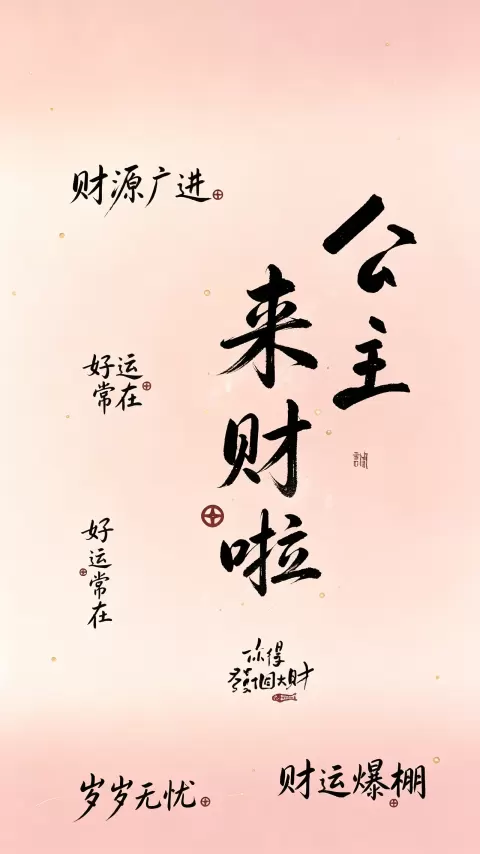 财源广进
公主
来财啦
好运
常在
好运常在
你得
發個大财
岁岁无忧
财运爆棚